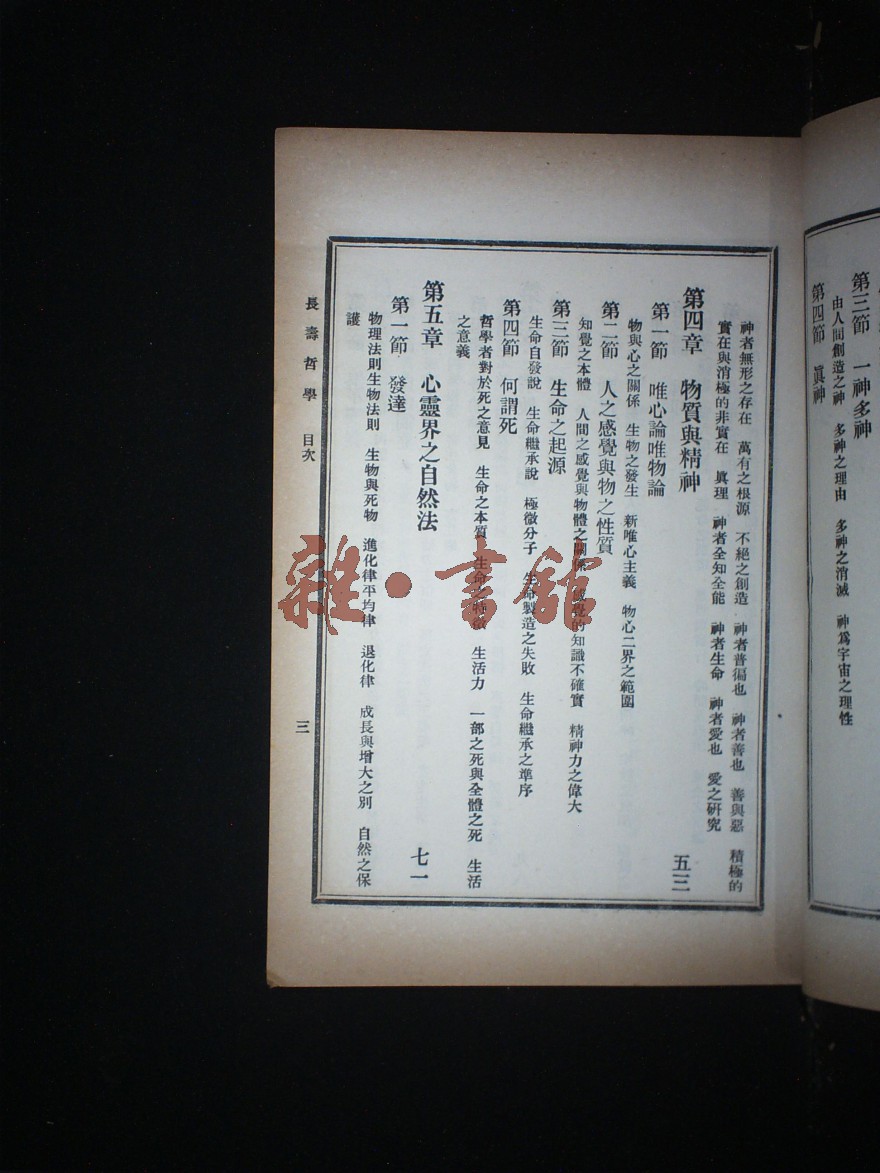 第三節　一神多神
由人間創造之神　多神之理由　多神之消滅　神爲宇宙之理性
第四節　眞神
神者無形之存在　萬有之根源　不絕之創造　神者普徧也　神者善也　善與惡　積極的
實在與消極的非實在　眞理　神者全知全能　神者生命　神者愛也　愛之硏究
第四章　物質與精神　五三
第一節　唯心論唯物論
物與心之關係　生物之發生　新唯心主義　物心二界之範圍
第二節　人之感覺與物之性質
知覺之本體　人間之感覺與物體之關係　感覺的知識不確實　精神力之偉大
第三節　生命之起源
生命自發說　生命繼承說　極微分子　生命製造之失敗　生命繼承之準序
第四節　何謂死
哲學者對於死之意見　生命之本質　生命之特徵　生活力　一部之死與全體之死　生活
之意義
第五章　心靈界之自然法　七一
第一節　發達
物理法則生物法則　生物與死物　進化律平均律　退化律　成長與增大之別　自然之保
護
長壽哲學　目次　三
雜·書館